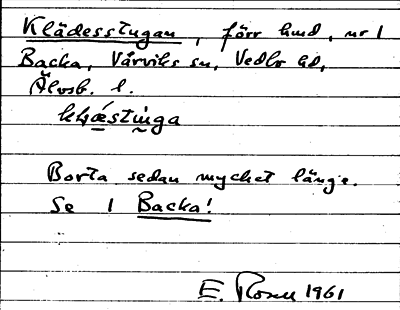 Klädesstugan, förr hmd, nr 1
Backa, Vårviks sn, Vedbo hd,
Älvsb. l.
Borta sedan mycket länge.
Se 1 Backa!
E. Rosell 1961